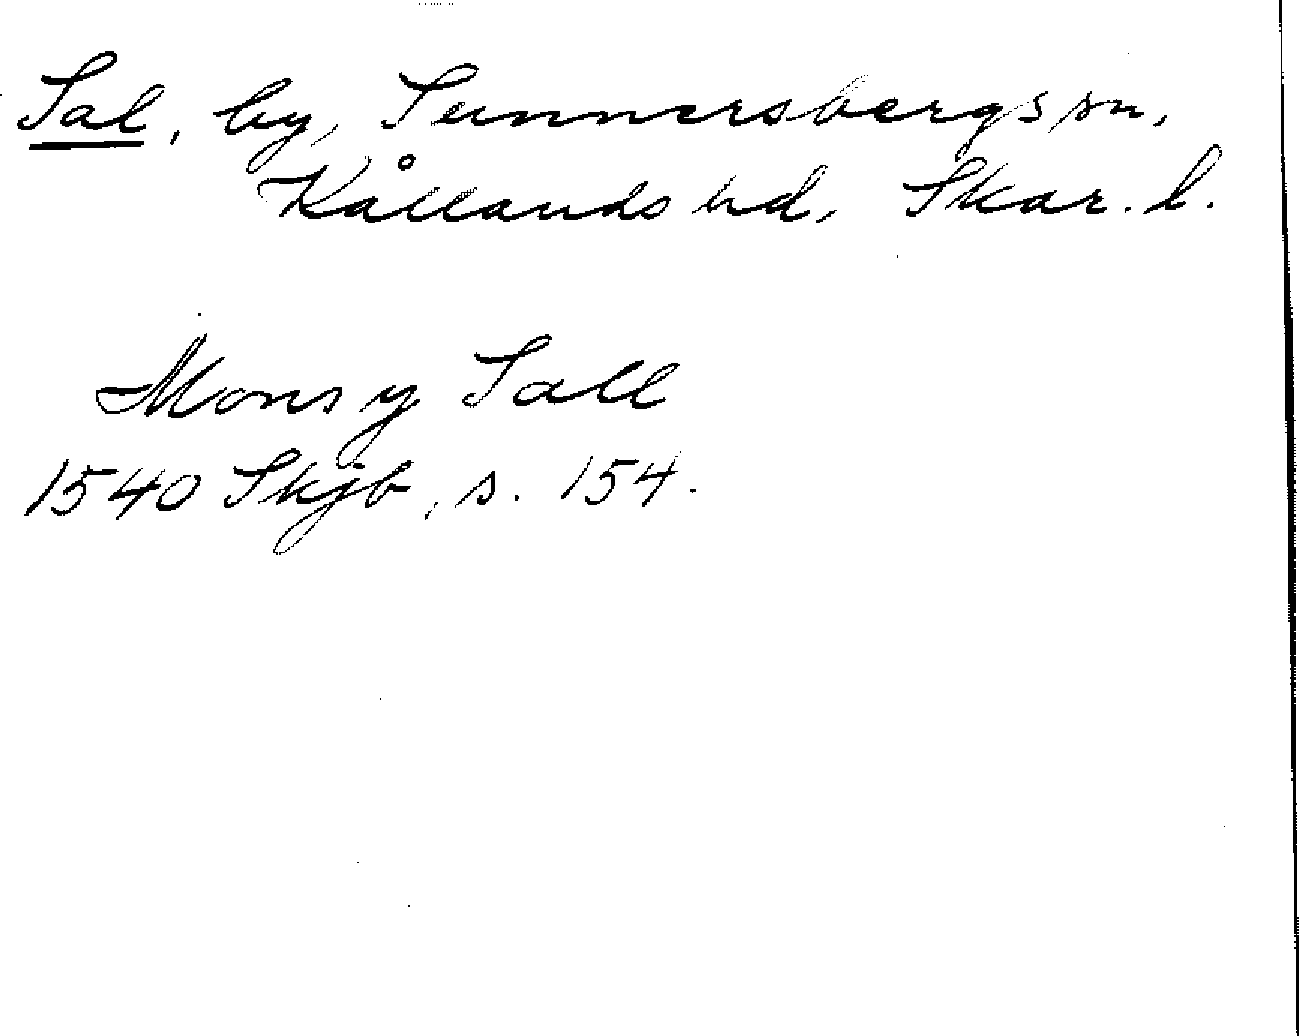 Sal, by, Sunnersbergs sn,
Kållands hd, Skar. l.
Mons y Sall
1540 Skjb, s. 154.